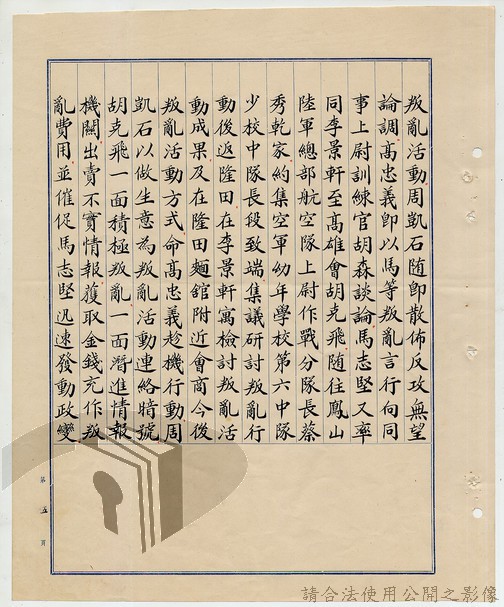 叛亂活動周凱石随即散佈反攻無望
論調高忠義即以馬等叛亂言行向同
事上尉訓練官胡森談論馬志堅又率
同李景軒至高雄會胡克飛随往鳳山
陸軍總部航空隊上尉作戰分隊長蔡
秀乾家約集空軍幼年學校第六中隊
少校中隊長段致端集議研討叛亂行
動後返隆田在李景軒寓檢討叛亂活
動成果及在隆田麵舘附近會商今後
叛亂活動方式命高忠義趁機行動周
凱石以做生意為叛亂活動連絡暗號
胡克飛一面積極叛亂一面潛進情報
機關出賣不實情報獲取金錢充作叛
亂費用並催促馬志堅迅速發動政變
第五頁
請合法使用公開之影像